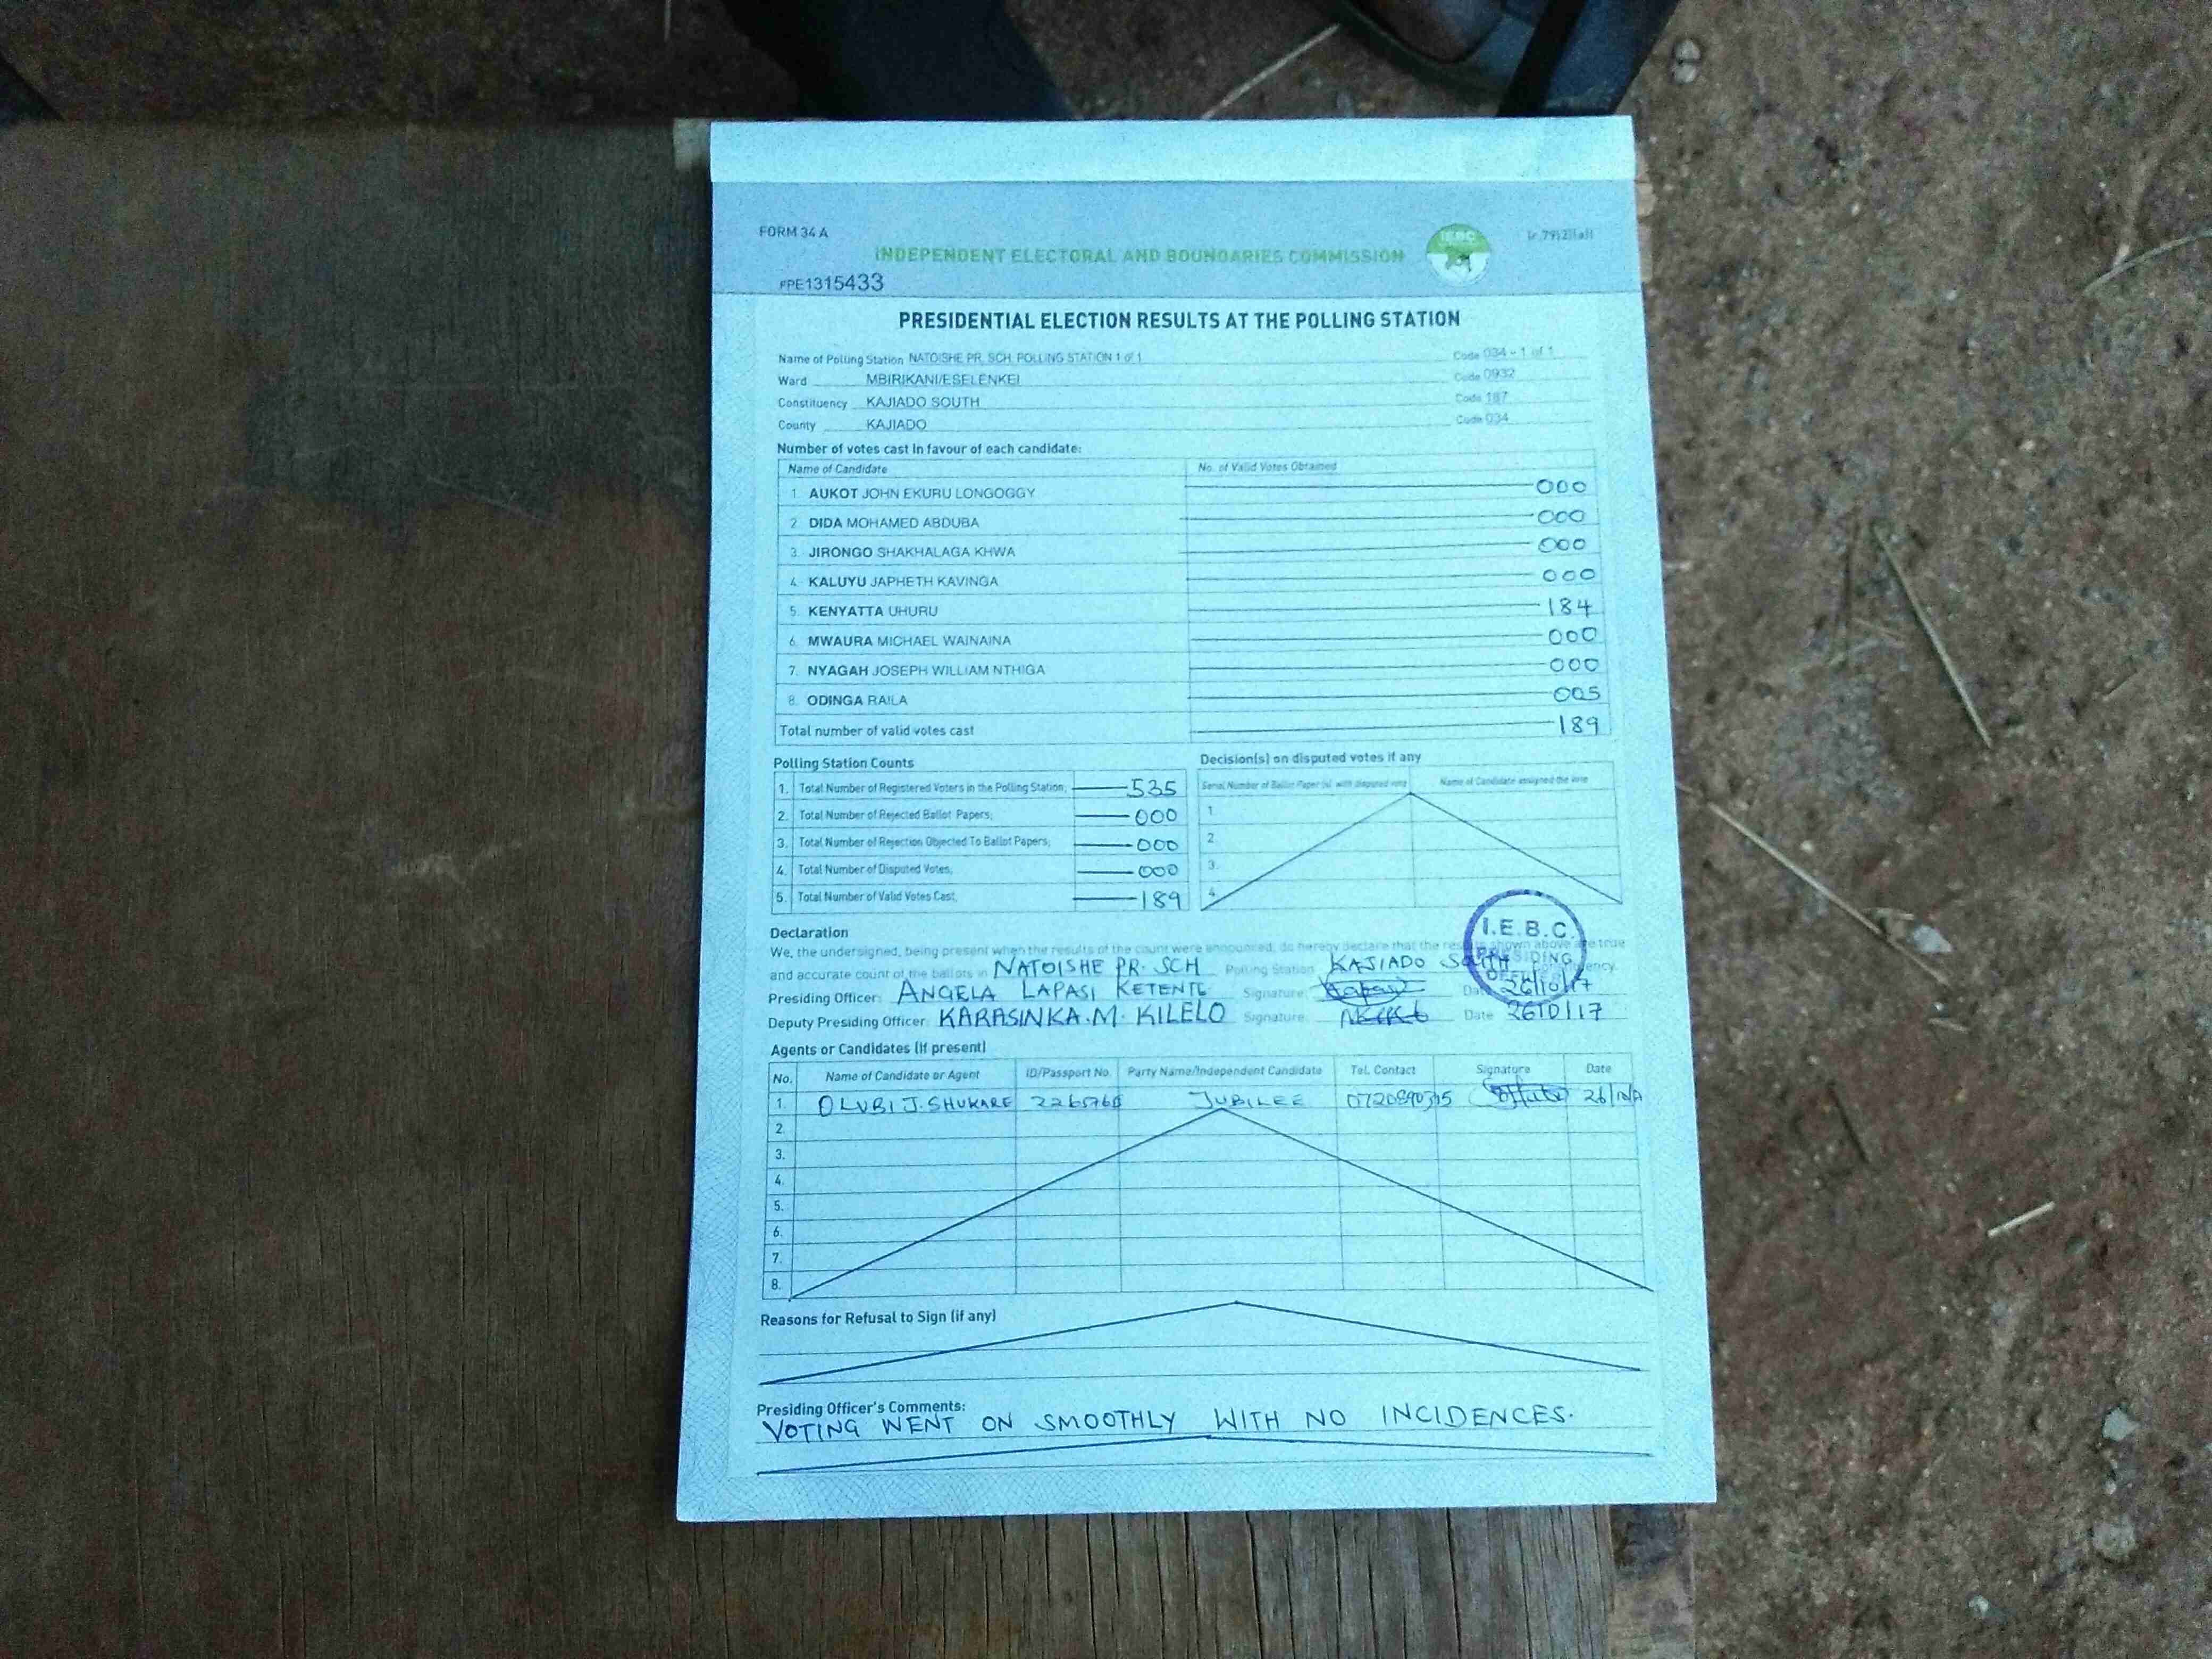 FORM 34 A
INDEPENDENT ELECTORAL AND BOUNDARIES COMMISSION
IEBC
PPE1315433
PRESIDENTIAL ELECTION RESULTS AT THE POLLING STATION
Name of Polling Station NATOISHE PR. SCH. POLLING STATION 1 of 1 Code 034 - 1 of 1
Ward MBIRIKANI/ESELENKEI Code 0932
Constituency KAJIADO SOUTH Code 187
County KAJIADO Code 034
Number of votes cast in favour of each candidate:
Name of Candidate No. of Valid Votes Obtained
1. AUKOT JOHN EKURU LONGOGGY 000
2. DIDA MOHAMED ABDUBA 000
3. JIRONGO SHAKHALAGA KHWA 000
4. KALUYU JAPHETH KAVINGA 000
5. KENYATTA UHURU 184
6. MWAURA MICHAEL WAINAINA 000
7. NYAGAH JOSEPH WILLIAM NTHIGA 000
8. ODINGA RAILA 005
Total number of valid votes cast 189
Polling Station Counts
1. Total Number of Registered Voters in the Polling Station; 535
2. Total Number of Rejected Ballot Papers; 000
3. Total Number of Rejection Objected To Ballot Papers; 000
4. Total Number of Disputed Votes; 000
5. Total Number of Valid Votes Cast; 189
Decision(s) on disputed votes if any
Serial Number of Ballot Paper(s) with disputed vote Name of Candidate assigned the vote
1.
2.
3.
4.
Declaration
We, the undersigned, being present when the results of the count were announced, do hereby declare that the results shown above are true
and accurate count of the ballots in NATOISHE PR. SCH Polling Station KAJIADO SOUTH
I.E.B.C.
PRESIDING
OFFICER
Presiding Officer: ANGELA LAPASI KETENTE Signature: Date 26/10/17
Deputy Presiding Officer: KARASINKA.M. KILELO Signature: Date 26/10/17
Agents or Candidates (if present)
No. Name of Candidate or Agent ID/Passport No. Party Name/Independent Candidate Tel. Contact Signature Date
1. OLUBI J. SHUKARE JUBILEE 26/10/17
2.
3.
4.
5.
6.
7.
8.
Reasons for Refusal to Sign (if any)
Presiding Officer's Comments:
VOTING WENT ON SMOOTHLY WITH NO INCIDENCES.